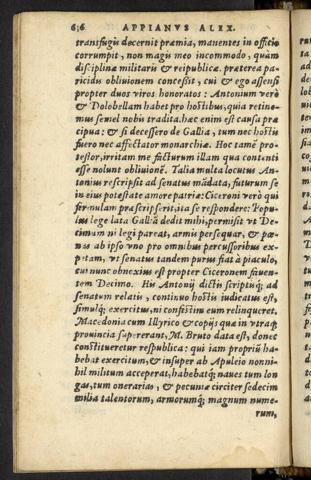 636 APPIANVS ALEX.
transfugij decernit præmia, manentes in officio
corrumpit, non magis meo incommodo, quàm
disciplinæ militaris & reipublicæ. præterea pa-
ricidis obliuionem concessit, cui & ego assensi
propter duos viros honoratos: Antonium verò
& Dolobellam habet pro hostibus, quia retine-
mus semel nobis tradita. hæc enim est causa præ
cipua: & si decessero de Gallia, tum nec hostis
fuero nec affectator monarchiæ. Hoc tamē pro-
testor, irritam me facturum illam qua contenti
esse nolunt obliuionē. Talia multa locutus An-
tonius rescripsit ad senatus mādata, futurum se
in eius potestate amore patriæ: Ciceroni verò qui
formulam præscripserit, ita se respondere: Popu-
lus lege lata Galliā dedit mihi, permisit vt De-
cimum ni legi pareat, armis persequar, & pœ-
nas ab ipso vno pro omnibus percussoribus ex-
petam, vt senatus tandem purus fiat à piaculo,
cui nunc obnoxius est propter Ciceronem fauen-
tem Decimo. His Antonij dictis scriptisq́; ad
senatum relatis, continuo hostis iudicatus est,
simulq́; exercitus, ni confestim eum relinqueret.
Macedonia cum Illyrico & copijs quæ in vtraq́;
prouincia supererant, M. Bruto data est, donec
constitueretur respublica: qui iam propriū ha-
bebat exercitum, & insuper ab Apuleio nonni-
hil militum acceperat, habebatq́; naues tum lon
gas, tum onerarias, & pecuniæ circiter sedecim
milia talentorum, armorumq́; magnum nume-
rum,